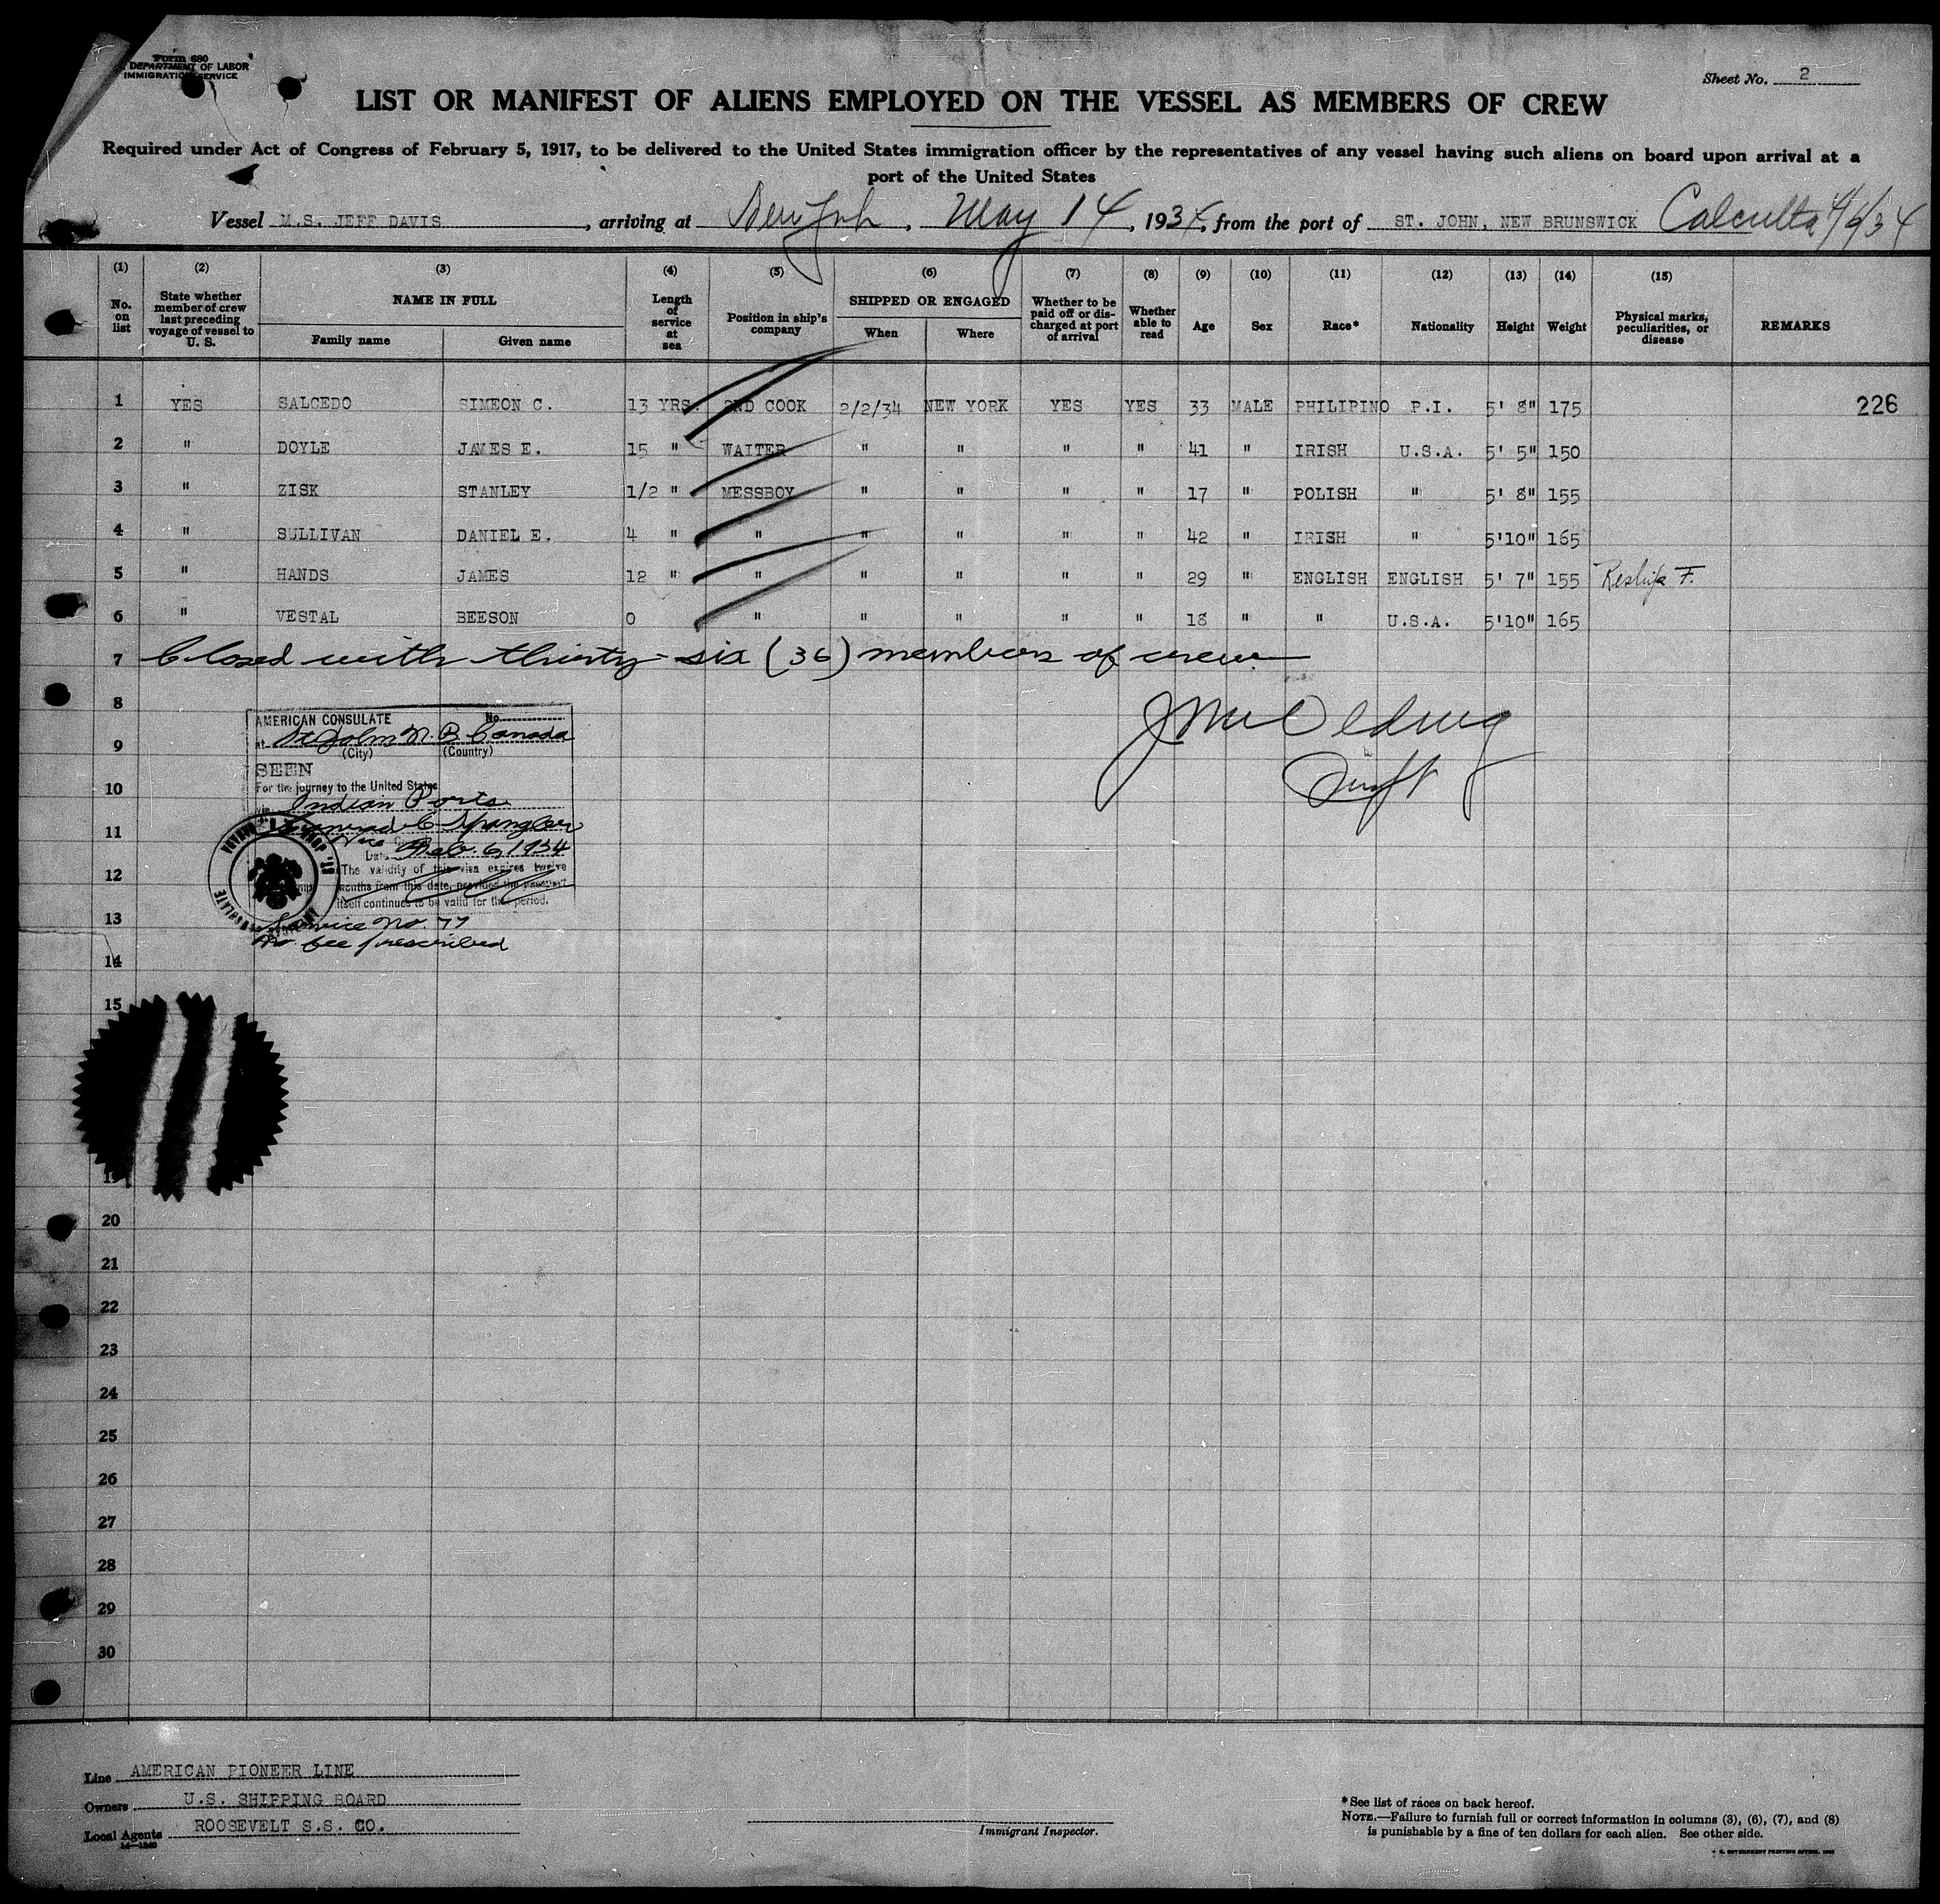 Form 680
DEPARTMENT OF LABOR
IMMIGRATION SERVICE
Sheet No. 2
LIST OR MANIFEST OF ALIENS EMPLOYED ON THE VESSEL AS MEMBERS OF CREW
Required under Act of Congress of February 5, 1917, to be delivered to the United States immigration officer by the representatives of any vessel having such aliens on board upon arrival at a
port of the United States
Vessel M.S. JEFF DAVIS, arriving at New York, May 14, 1934, from the port of ST. JOHN, NEW BRUNSWICK Calcutta 4/6/34
(1) (2) (3) (4) (5) (6) (7) (8) (9) (10) (11) (12) (13) (14) (15)
No. on list State whether member of crew last preceding voyage of vessel to U. S. NAME IN FULL Family name Given name Length of service at sea Position in ship's company SHIPPED OR ENGAGED When Where Whether to be paid off or discharged at port of arrival Whether able to read Age Sex Race* Nationality Height Weight Physical marks, peculiarities, or disease REMARKS
1 YES SALCEDO SIMEON C. 13 YRS. 2ND COOK 2/2/34 NEW YORK YES YES 33 MALE PHILIPINO P.I. 5' 8" 175 226
2 " DOYLE JAMES E. 15 " WAITER " " " " 41 " IRISH U.S.A. 5' 5" 150
3 " ZISK STANLEY 1/2 " MESSBOY " " " " 17 " POLISH " 5' 8" 155
4 " SULLIVAN DANIEL E. 4 " " " " " " 42 " IRISH " 5'10" 165
5 " HANDS JAMES 12 " " " " " " 29 " ENGLISH ENGLISH 5' 7" 155
6 " VESTAL BEESON 0 " " " " " 18 " " U.S.A. 5'10" 165
7 Closed with thirty-six (36) members of crew
8
AMERICAN CONSULATE No.
at St John N. B. Canada
9
(City) (Country)
SEEN
10
For the journey to the United States
via Indian Ports
11
Spangler
Vice
Date Feb. 6, 1934
12
The validity of this visa expires twelve
months from this date, provided the passport
itself continues to be valid for the period.
13
Service No. 77
No fee prescribed
14
15
20
21
22
23
24
25
26
27
28
29
30
Line AMERICAN PIONEER LINE
Owners U.S. SHIPPING BOARD
Local Agents ROOSEVELT S.S. CO.
Immigrant Inspector.
*See list of races on back hereof.
NOTE.—Failure to furnish full or correct information in columns (3), (6), (7), and (8)
is punishable by a fine of ten dollars for each alien. See other side.